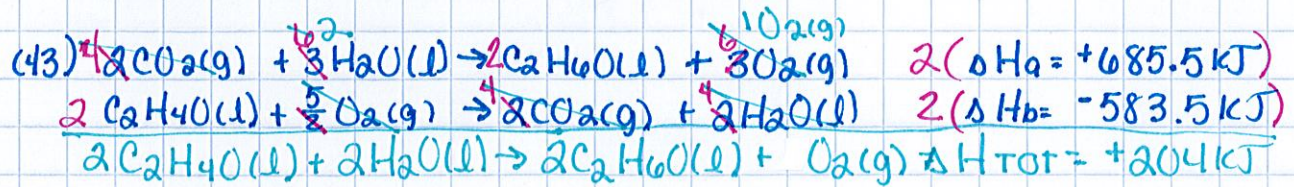 1O2(g)
(43) 4 2CO2(g) + 6 2 3H2O(l) → 2C2H6O(l) + 6 3O2(g) 2(ΔHa = +685.5 KJ)
2 C2H4O(l) + 5/2 O2(g) → 4 2CO2(g) + 4 2H2O(l) 2(ΔHb= -583.5 KJ)
2C2H4O(l) + 2H2O(l) → 2C2H6O(l) + O2(g) ΔHTOT = +204 KJ